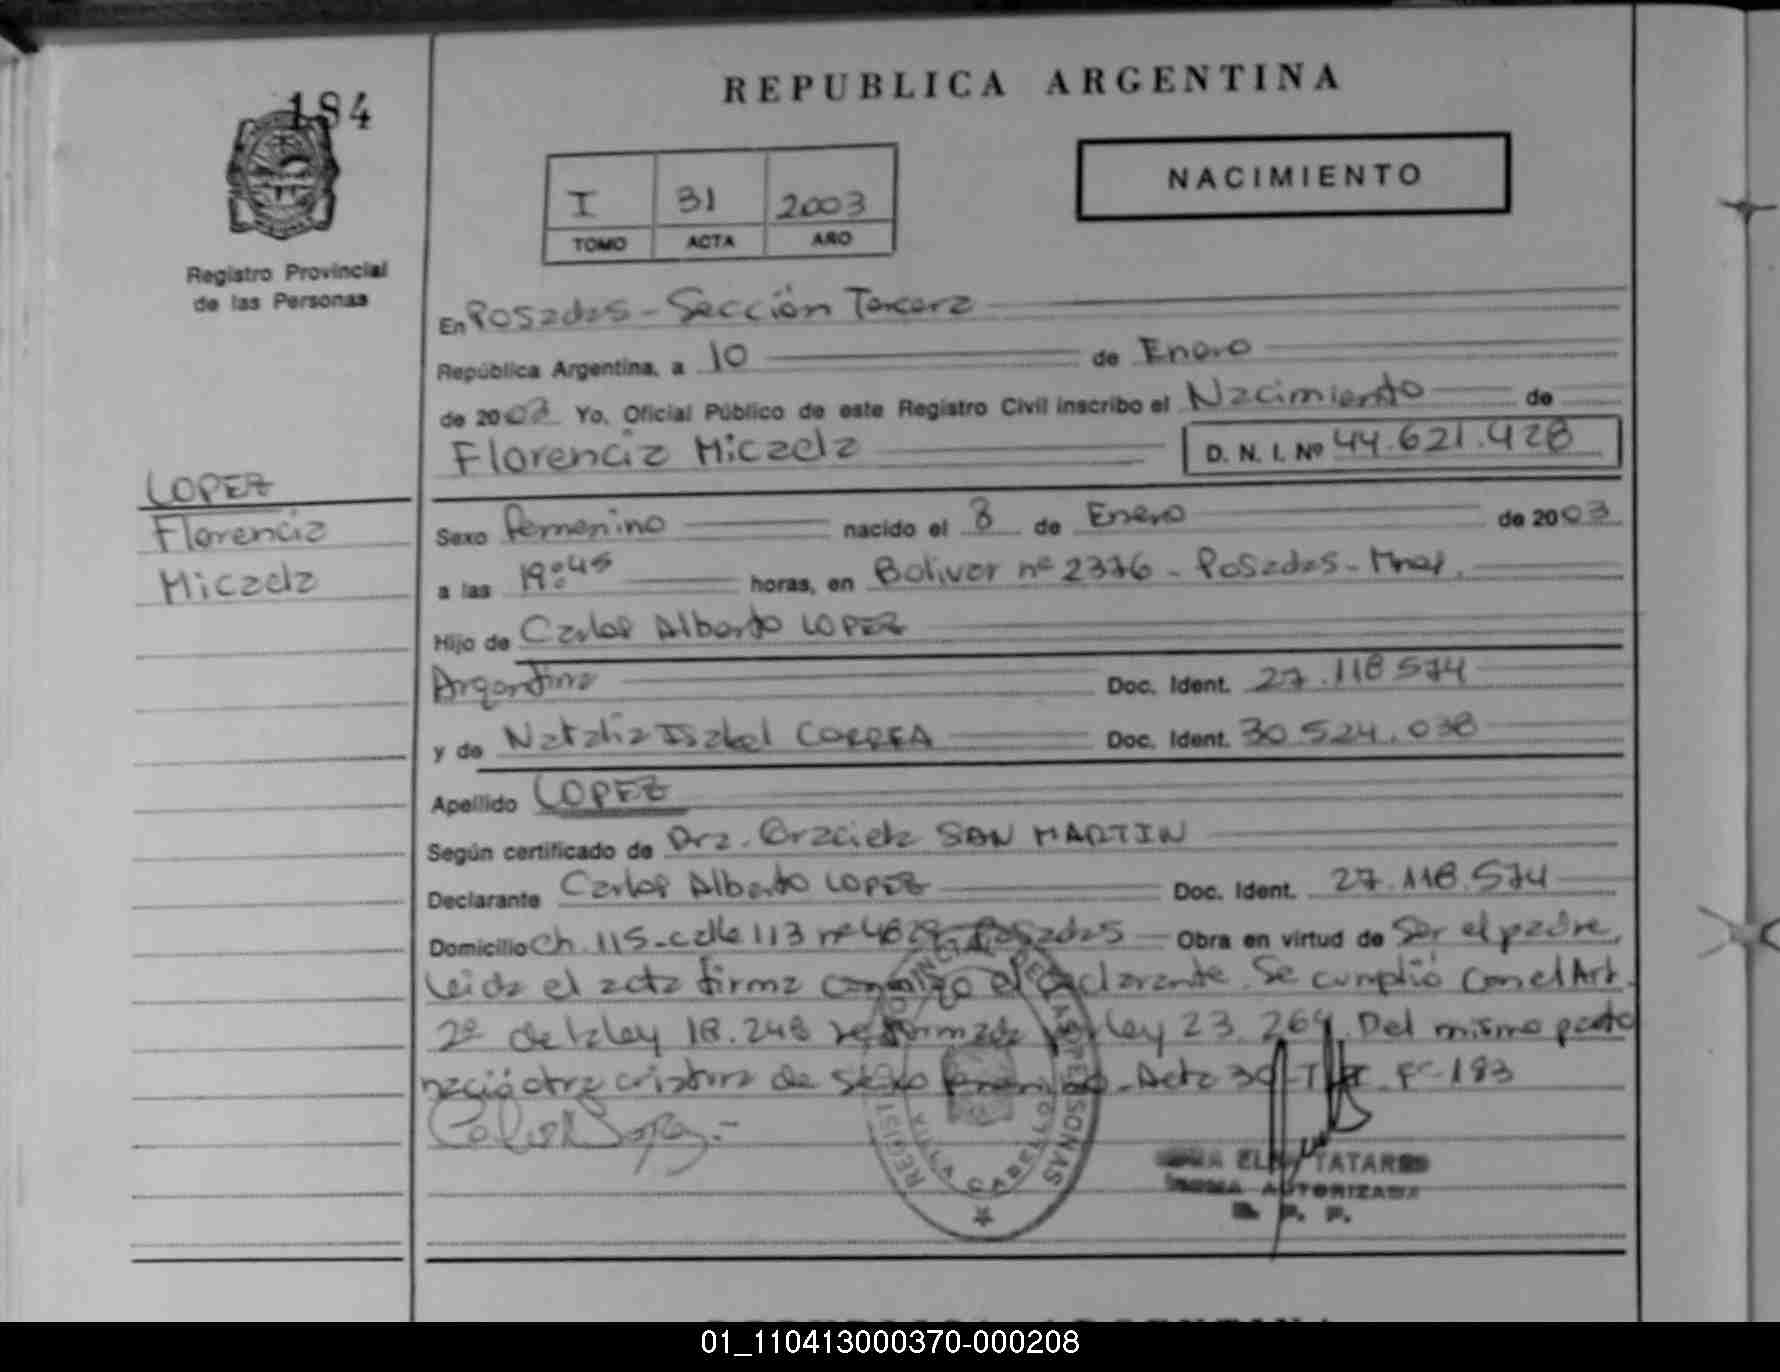 184
REPUBLICA ARGENTINA
NACIMIENTO
I 31 2003
TOMO ACTA AÑO
Registro Provincial
de las Personas
En Posadas - Sección Tercera
República Argentina, a 10 de Enero
de 2003 Yo, Oficial Público de este Registro Civil inscribo el Nacimiento de
Florencia Micaela D. N. I. Nº 44.621.428
LOPEZ
Florencia
Micaela
Sexo femenino nacido el 8 de Enero de 2003
a las 19:45 horas, en Bolivar nº 2376 - Posadas - Mnes.
Hijo de Carlos Alberto LOPEZ
Argentina Doc. Ident. 27.118.574
y de Natalia Isabel CORREA Doc. Ident. 30.524.038
Apellido LOPEZ
Según certificado de Dra. Graciela SAN MARTIN
Declarante Carlos Alberto LOPEZ Doc. Ident. 27.118.574
Domicilio Ch. 115 - calle 113 nº 4829 - Posadas - Obra en virtud de Ser el padre,
leida el acta firma conmigo el declarante. Se cumplió con el Art.
2º de la ley 18.248 reformada por ley 23.264. Del mismo parto
nació otra criatura de sexo femenino - Acta 30 - T I - Fº 183
REGISTRO PROVINCIAL DE LAS PERSONAS
VILLA CABELLO
TATAREN
FIRMA AUTORIZADA
R. P. P.
REPUBLICA ARGENTINA
01_110413000370-000208